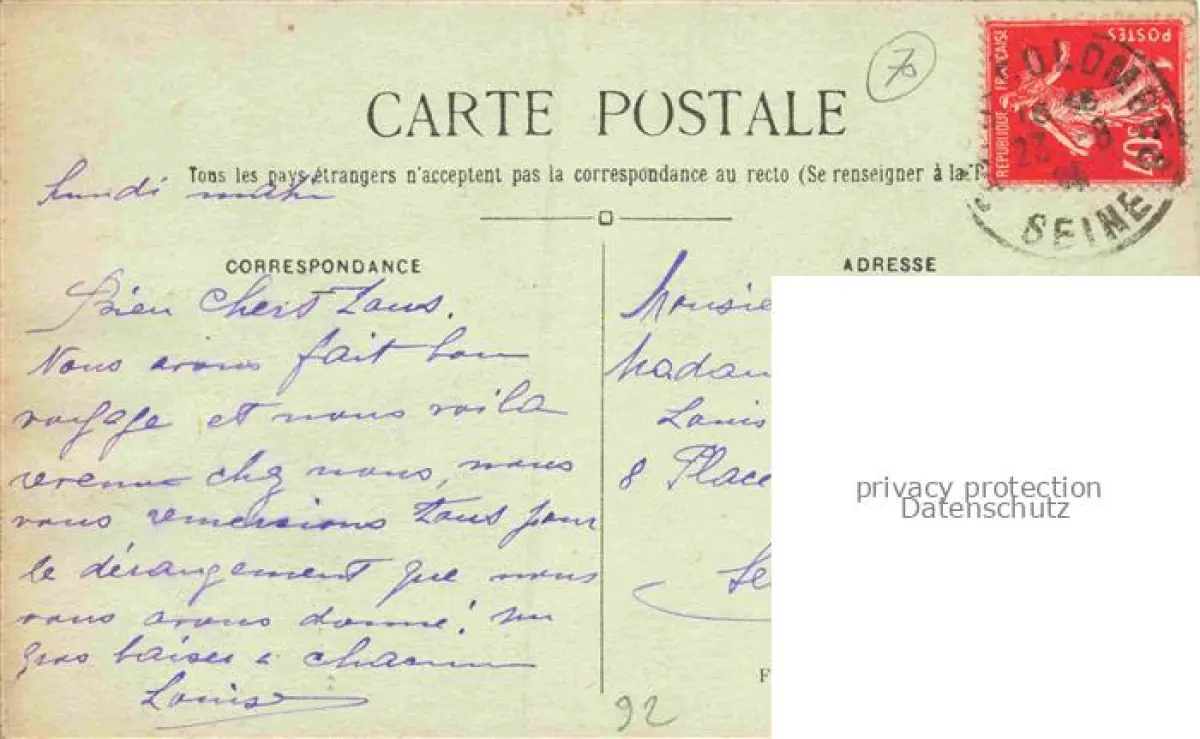 70
POSTES
RÉPUBLIQUE FRANÇAISE
COLOMBES
23 - 8
SEINE
CARTE POSTALE
Tous les pays étrangers n'acceptent pas la correspondance au recto (Se renseigner à la
lundi matin
CORRESPONDANCE
Bien Chers Tous.
Nous avons fait bon
voyage et nous voila
revenu chez nous, nous
vous remercions Tous pour
le dérangement que nous
vous avons donné! un
gros baiser à chacun
Louis
ADRESSE
Monsie
Madam
Louis
8 Place
F
92
privacy protection
Datenschutz